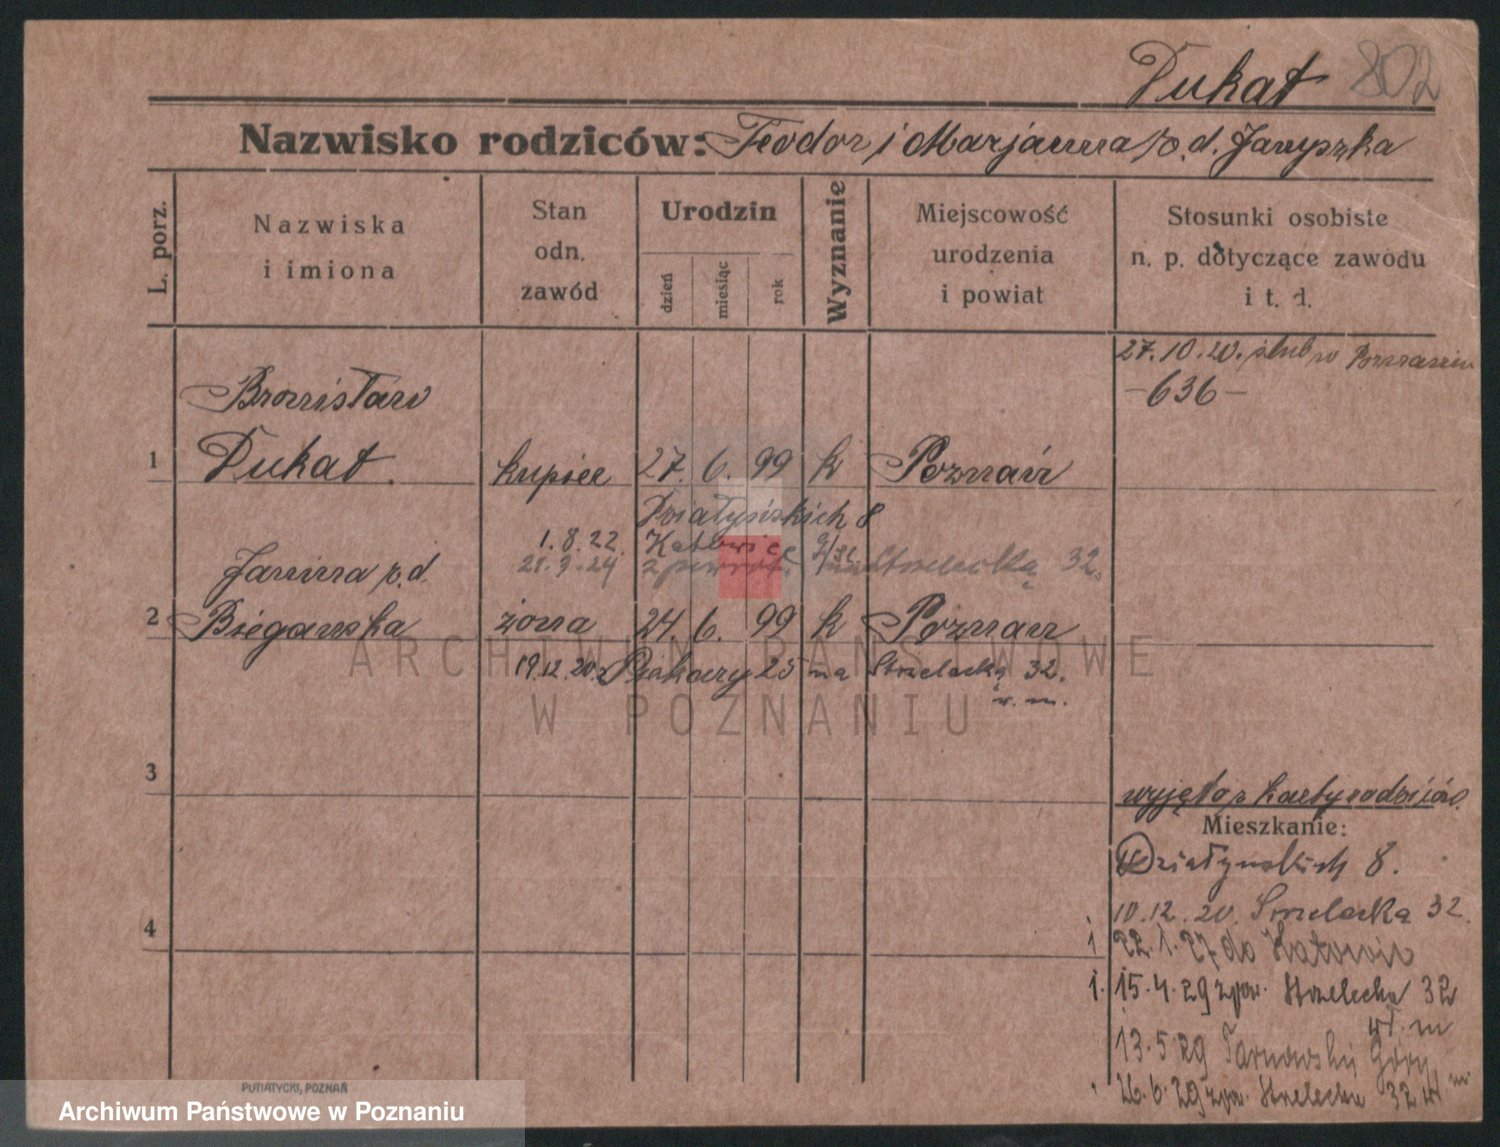 Dukat 802
Nazwisko rodziców: Teodor i Marjanna z d. Januszka
L. porz.
Nazwiska
i imiona
Stan
odn.
zawód
Urodzin
dzień
miesiąc
rok
Wyznanie
Miejscowość
urodzenia
i powiat
Stosunki osobiste
n. p. dotyczące zawodu
i t. d.
27.10.20. ślub w Poznaniu
-636-
Bronisław
1 Dukat. kupiec 27. 6. 99 k Poznań
Działyńskich 8
1.8.22. Katowice
21.9.24 Strzelecką 32.
Janina z d.
2 Biegańska żona 24. 6. 99 k Poznań
19.12.20. Piekary 25 na Strzelecką 32.
w. m.
3
wyjęto z karty rodziców.
Mieszkanie:
Działyńskich 8.
10.12.20. Strzelecka 32.
1 22.1.27 do Katowic
4
1. 15.4.29 zpow. Strzelecka 32
wł. m
13.5.29 Tarnowskie Góry
26.6.29 zpow. Strzelecka 32 wł. m.
ARCHIWUM PAŃSTWOWE
W POZNANIU
PUTIATYCKI, POZNAŃ
Archiwum Państwowe w Poznaniu